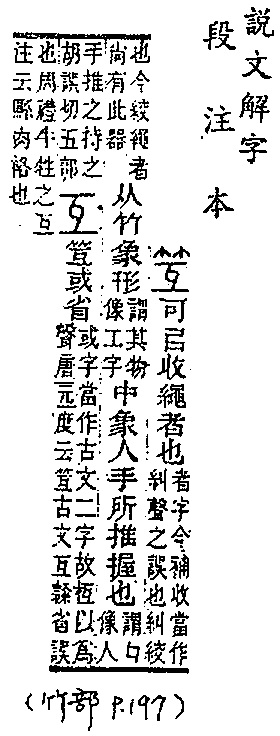 說文解字
段注本
䇘可㠯收繩者也
者字今補收當作
糾聲之誤也糾絞
也今絞繩者
尚有此器
从竹象形
謂其物
像工字
中象人手所推握也
謂口
像人
手推之持之
胡誤切五部
互䇘或省
或字當作古文二字故枑以爲
聲唐玄度云䇘古文互隸省誤
也周禮牛牲之互
注云縣肉格也
(竹部 P.197)